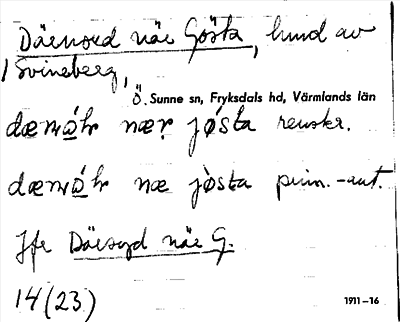 Därnord när Gösta, hund av
Svineberg,
Ö. Sunne sn, Fryksdals hd, Värmlands län
dæɳọ́r næṛ jǿsta renskr.
næ jǿsta prim.-ant.
Jfr Därsyd när G.
14 (23)
1911–16